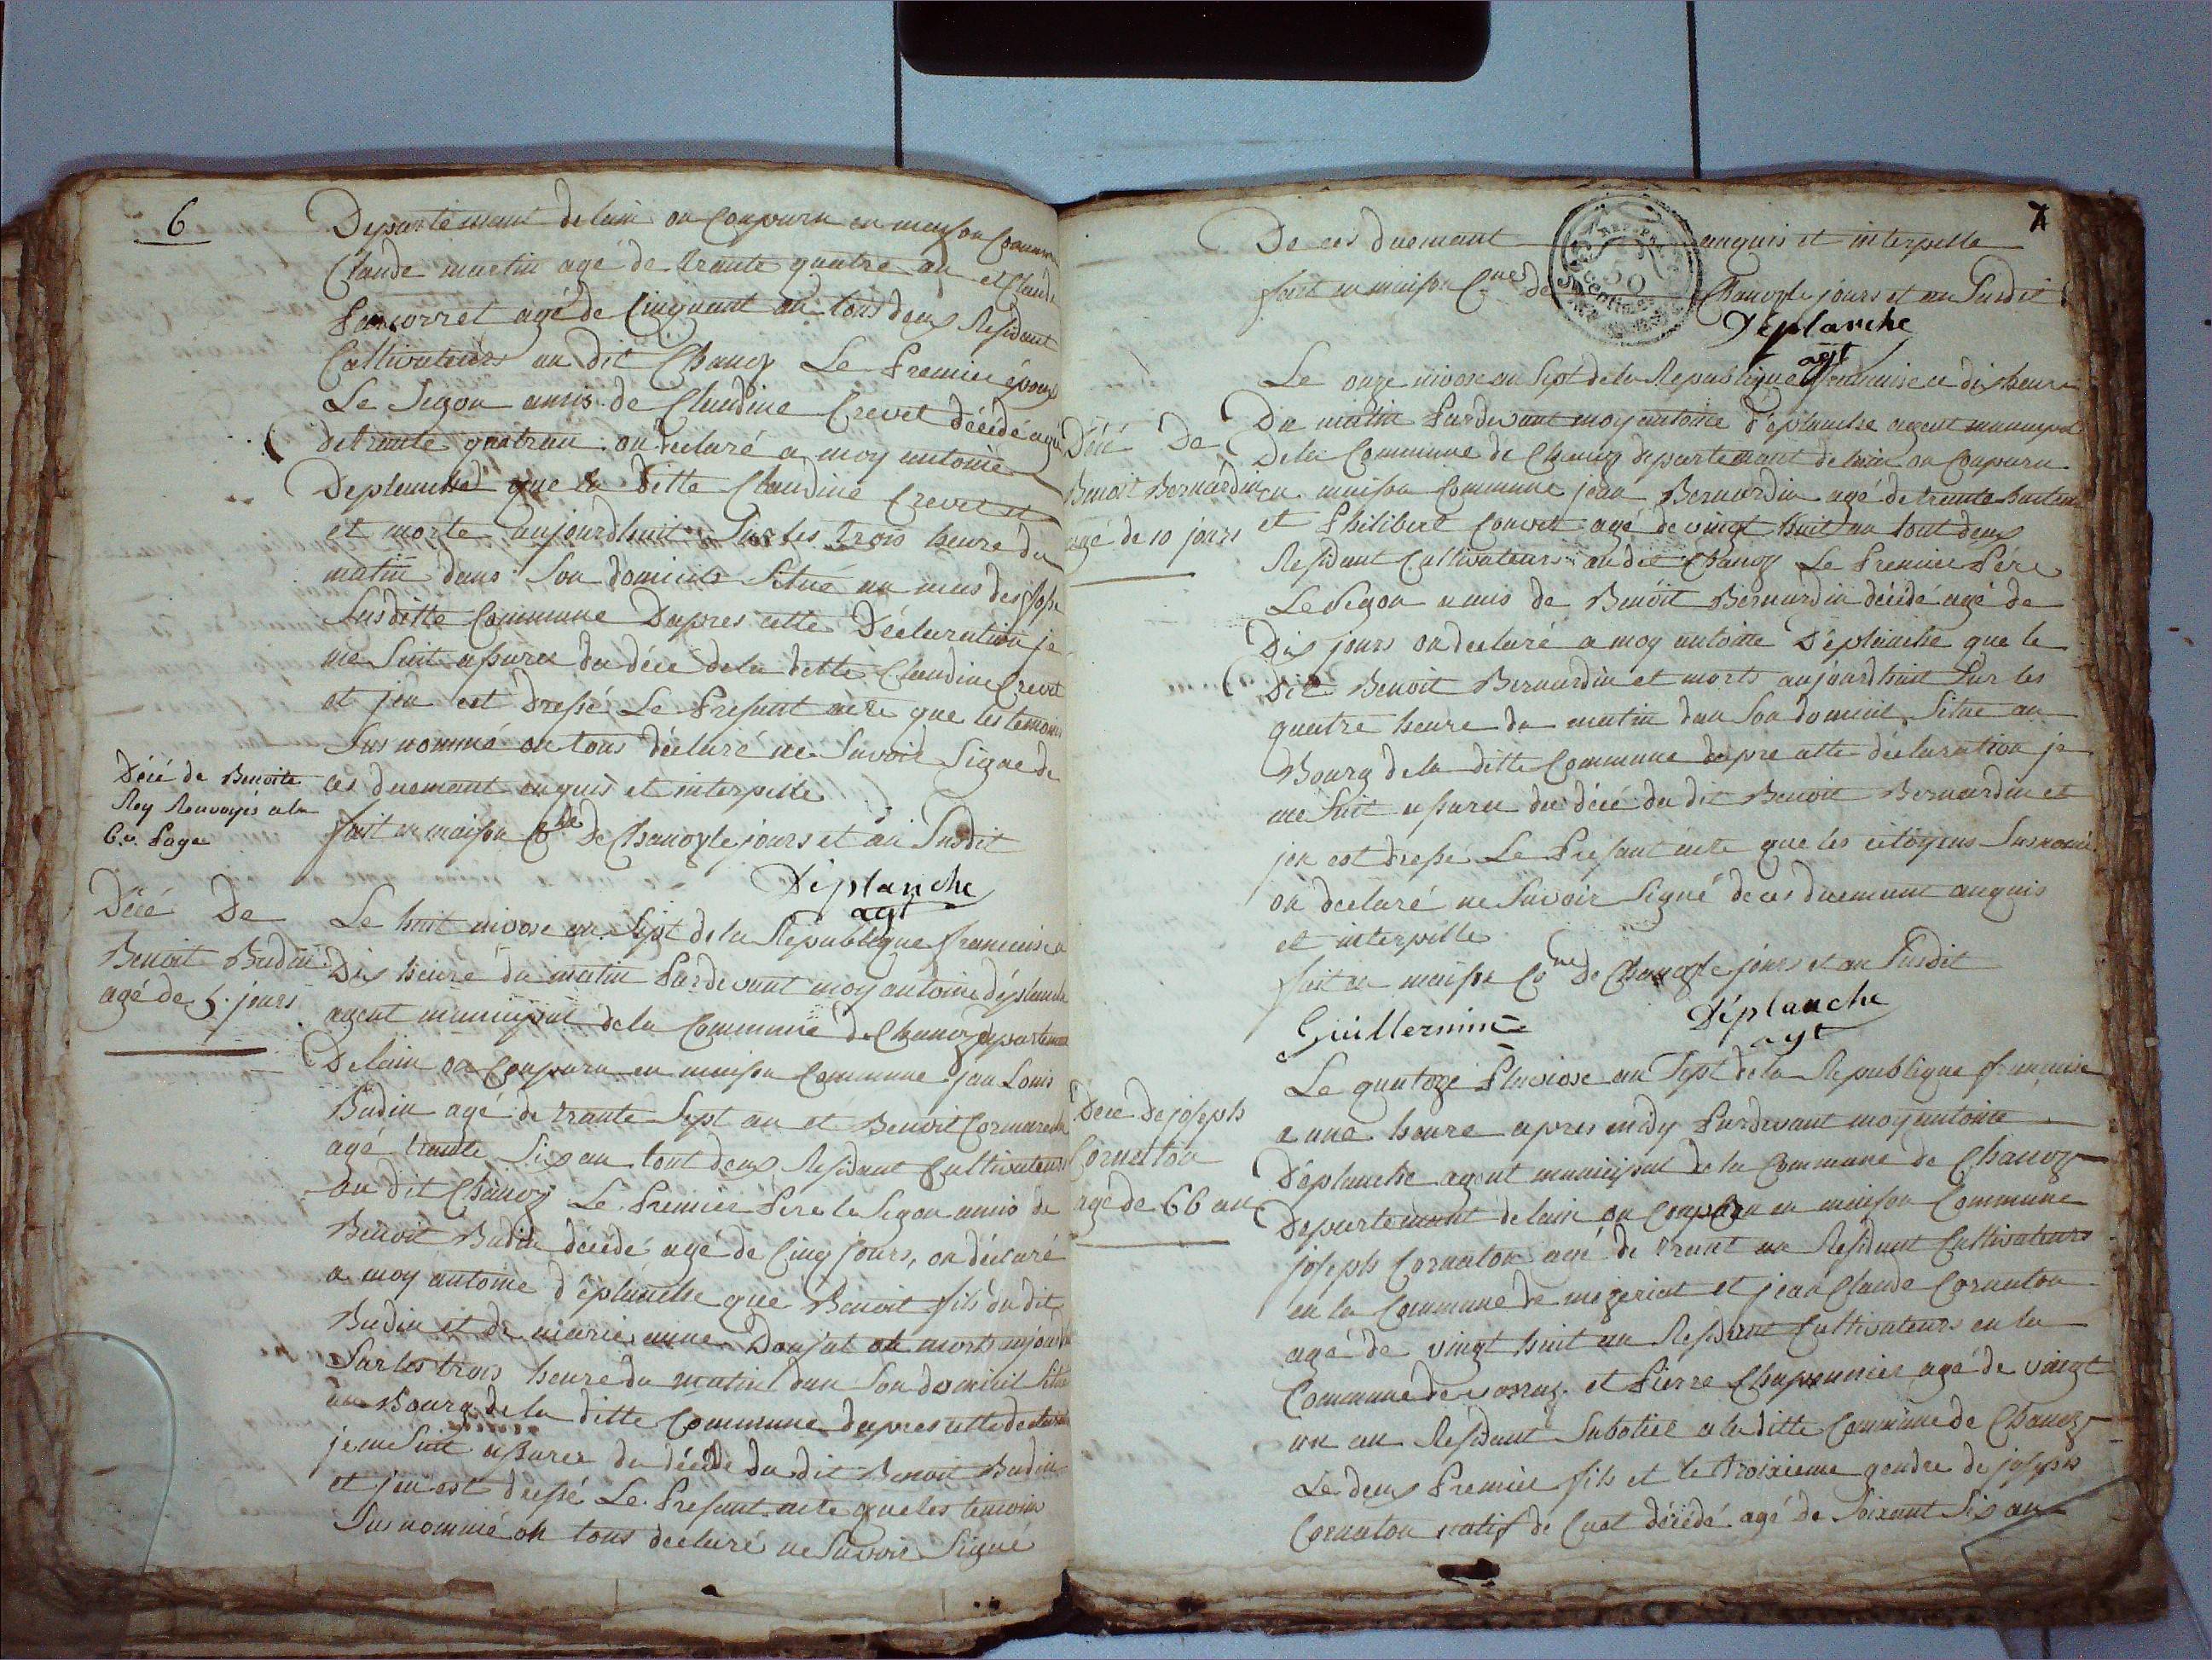 6
Departemant delain on Conparu en maison Commune
Claude martin agé de trante quatre an et Claude
agé de Cinquant an tous deux Residant
Cultivateurs au dit Chanoz Le Premier époux
Le Segon amis de Claudine Crevet décédé agé
de trante quatran on déclaré a moy antoine
Deplanche que la ditte Claudine Crevet et
et morte aujourdhuit Sur les trois heure du
matin dans Son domicile Situé au mas
Susditte Commune Dapres cette Déclaration je
me Suit assurez du décé dela ditte Claudine Crevet
et jen est Dressé Le Presant acte que les temoins
Sus nommé on tous déclaré ne Savoir Signé de
ces duemant anquis et interpellé
fait en maison Cne De Chanoz le jours et an Susdit
Déplanche
agt
Décé de Benoite
Rey Renvoyés a la
6.e Page
Décé De
Benoit Budin
agé de 5. jours
Le huit nivose an Sept de la République francaise a
Dix heure du matin Pardevant moy antoine déplanche
agent municipal dela Commune de Chanoz departemant
Delain on Conparu en maison Commune jean Louis
Budin agé de trante Sept an et Benoit Cormareche
agé trante Six an tout deux Residant Cultivateurs
au dit Chanoz Le Premier Pere le Segon amis de
Benoit Budin décédé agé de Cinq jours, on déclaré
a moy antoine déplanche que Benoit fils du dit
Budin et de marie anne Donjat morts aujourdhui
Sur les trois heure du matin dan Son domicil Situé
au Bourg de la ditte Commune dapres cette declaration
je me Suit assurez du décéde du dit Benoit Budin
et jen est dressé Le Presant acte que les temoins
Sus nommé on tous declaré ne Savoir Signé
7
De ces duemant anquis et interpelle
fait en maison Cne de Chanoz le jours et an Susdit
REP. FRA.
50
centimes
Déplanche
agt
Décé De
Benoit Bernardin
agé de 10 jours
Le onze nivose an Sept de la Republique francaise a dix heure
Du matin Pardevant moy antoine déplanche agent municipal
Dela Commune de Chanoz departemant delain on Conparu
en maison Commune jean Bernardin agé de trante huit an
et Philibert Convert agé de vingt huit an tout deux
Residant Cultivateurs au dit Chanoz Le Premier Pére
Le Segon amis de Benoit Bernardin décédé agé de
Dix jours on declaré a moy antoine Déplanche que le
Dit Benoit Bernardin et morts aujourdhuit Sur les
quatre heure du matin dan Son domicil Situe au
Bourg dela ditte Commune dapre cette déclaration je
me Suit assuré du décé du dit Benoit Bernardin et
jen est dressé Le Presant acte que les citoyens Susnomé
on declaré ne Savoir Signé de ces duemant anquis
et interpelle
fait en maison Cone de Chanoz le jours et an Susdit
Guillermin Déplanche
agt
Décé De joseph
Cornaton
agé de 66 an
Le quatorze Pluviose an Sept de la Republique francaise
a une heure apres midy Pardevant moy antoine
Déplanche agent municipal de la Commune de Chanoz
Departemant delain on Conparu en maison Commune
joseph Cornaton agé de trant an Residant Cultivateurs
en la Commune de mezeriat et jean Claude Cornaton
agé de vingt huit an Residant Cultivateurs en la
Commune de vonnaz. et Piérre Chaponnier agé de vingt
un an Residant Sabotier a la ditte Commune de Chanoz
Le deux Premier fils et le troixieme gendre de joseph
Cornaton natif de Cuet décédé agé de Soixant Six an